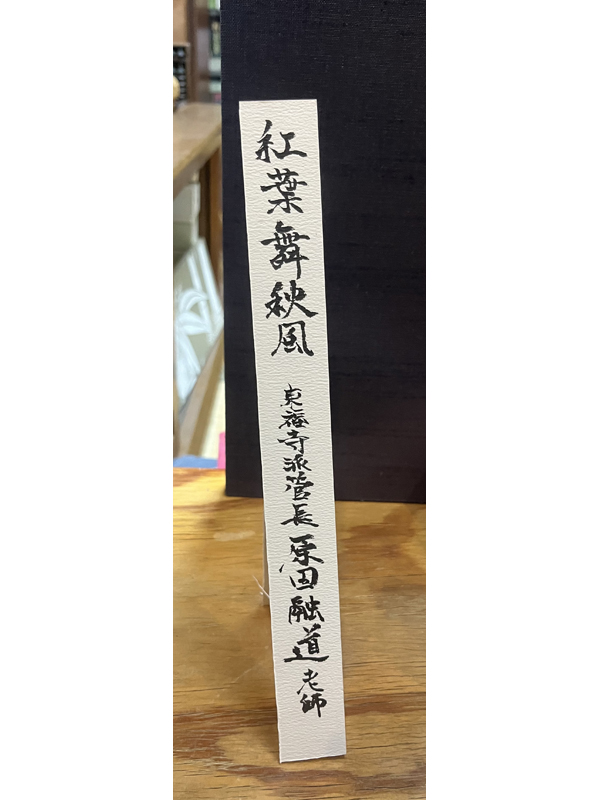 紅葉舞秋風 東福寺派管長 原田融道 老師